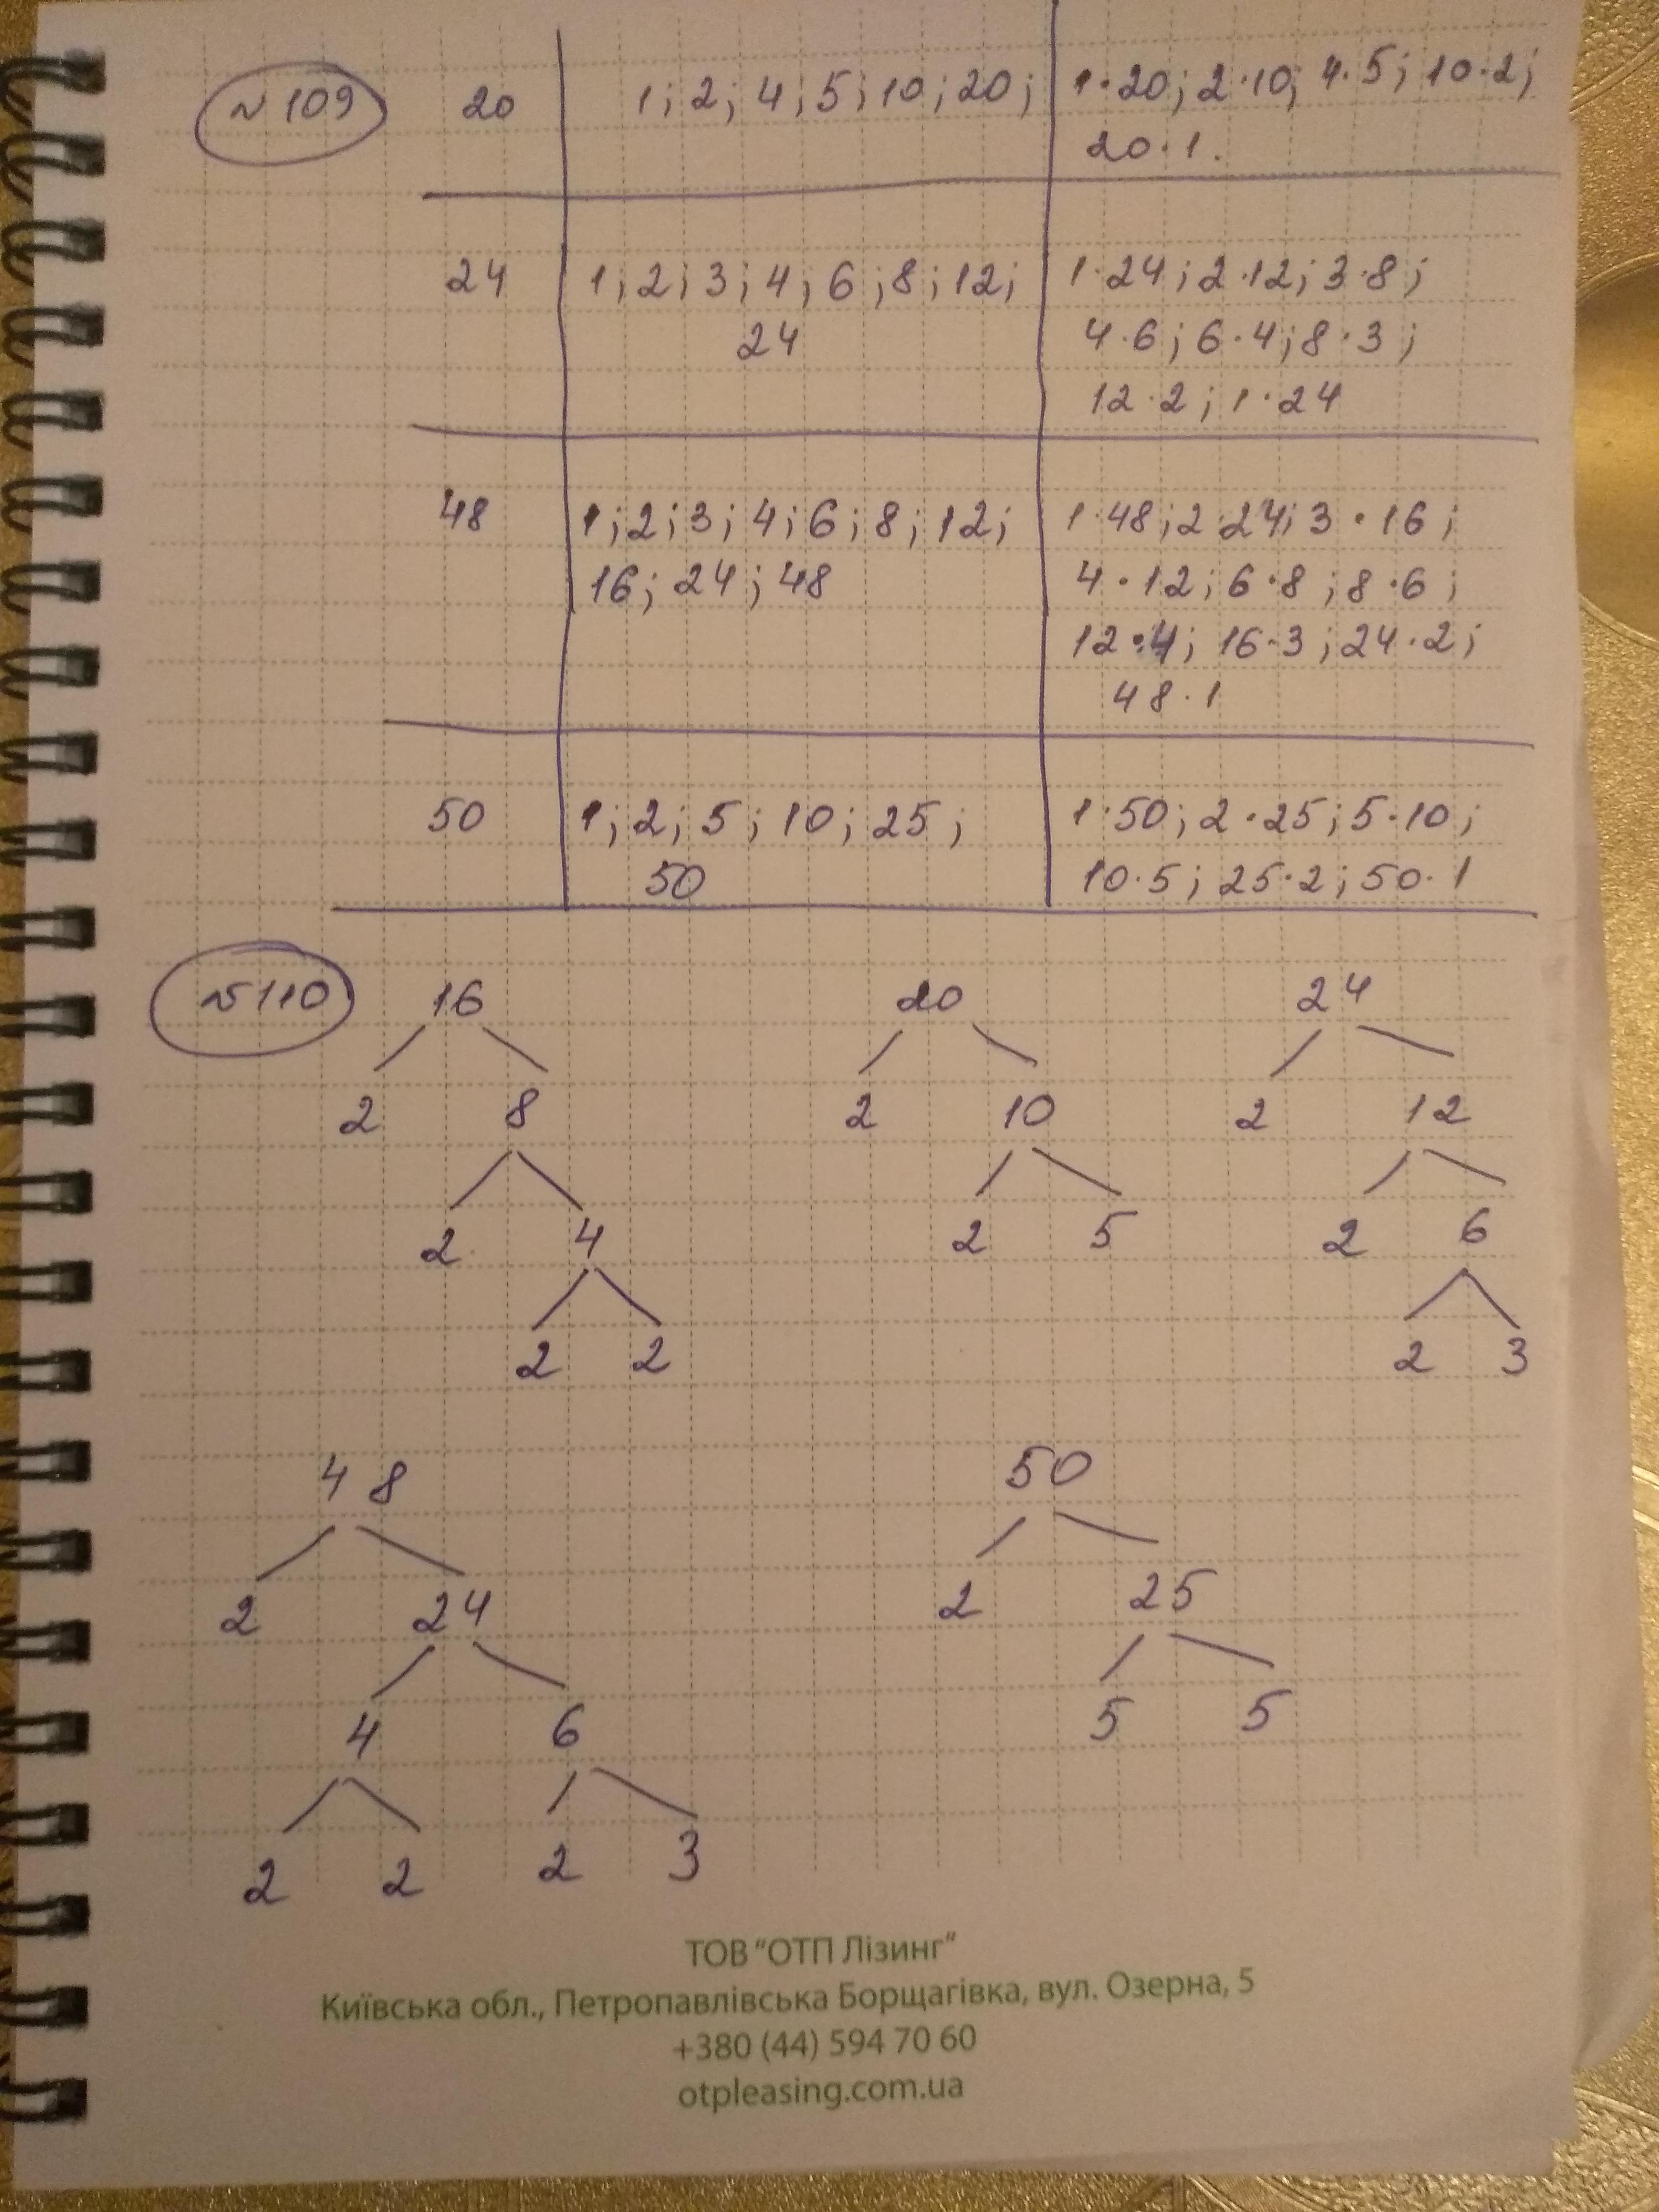 №109 20 1; 2; 4; 5; 10; 20; 1·20; 2·10; 4·5; 10·2;
20·1.
24 1; 2; 3; 4; 6; 8; 12; 1·24; 2·12; 3·8;
24 4·6; 6·4; 8·3;
12·2; 1·24
48 1; 2; 3; 4; 6; 8; 12; 1·48; 2 24; 3·16;
16; 24; 48 4·12; 6·8; 8·6;
12·4; 16·3; 24·2;
48·1
50 1; 2; 5; 10; 25; 1·50; 2·25; 5·10;
50 10·5; 25·2; 50·1
№110 16 20 24
2 8 2 10 2 12
2 4 2 5 2 6
2 2 2 3
48 50
2 24 2 25
4 6 5 5
2 2 2 3
ТОВ "ОТП Лізинг"
Київська обл., Петропавлівська Борщагівка, вул. Озерна, 5
+380 (44) 594 70 60
otpleasing.com.ua